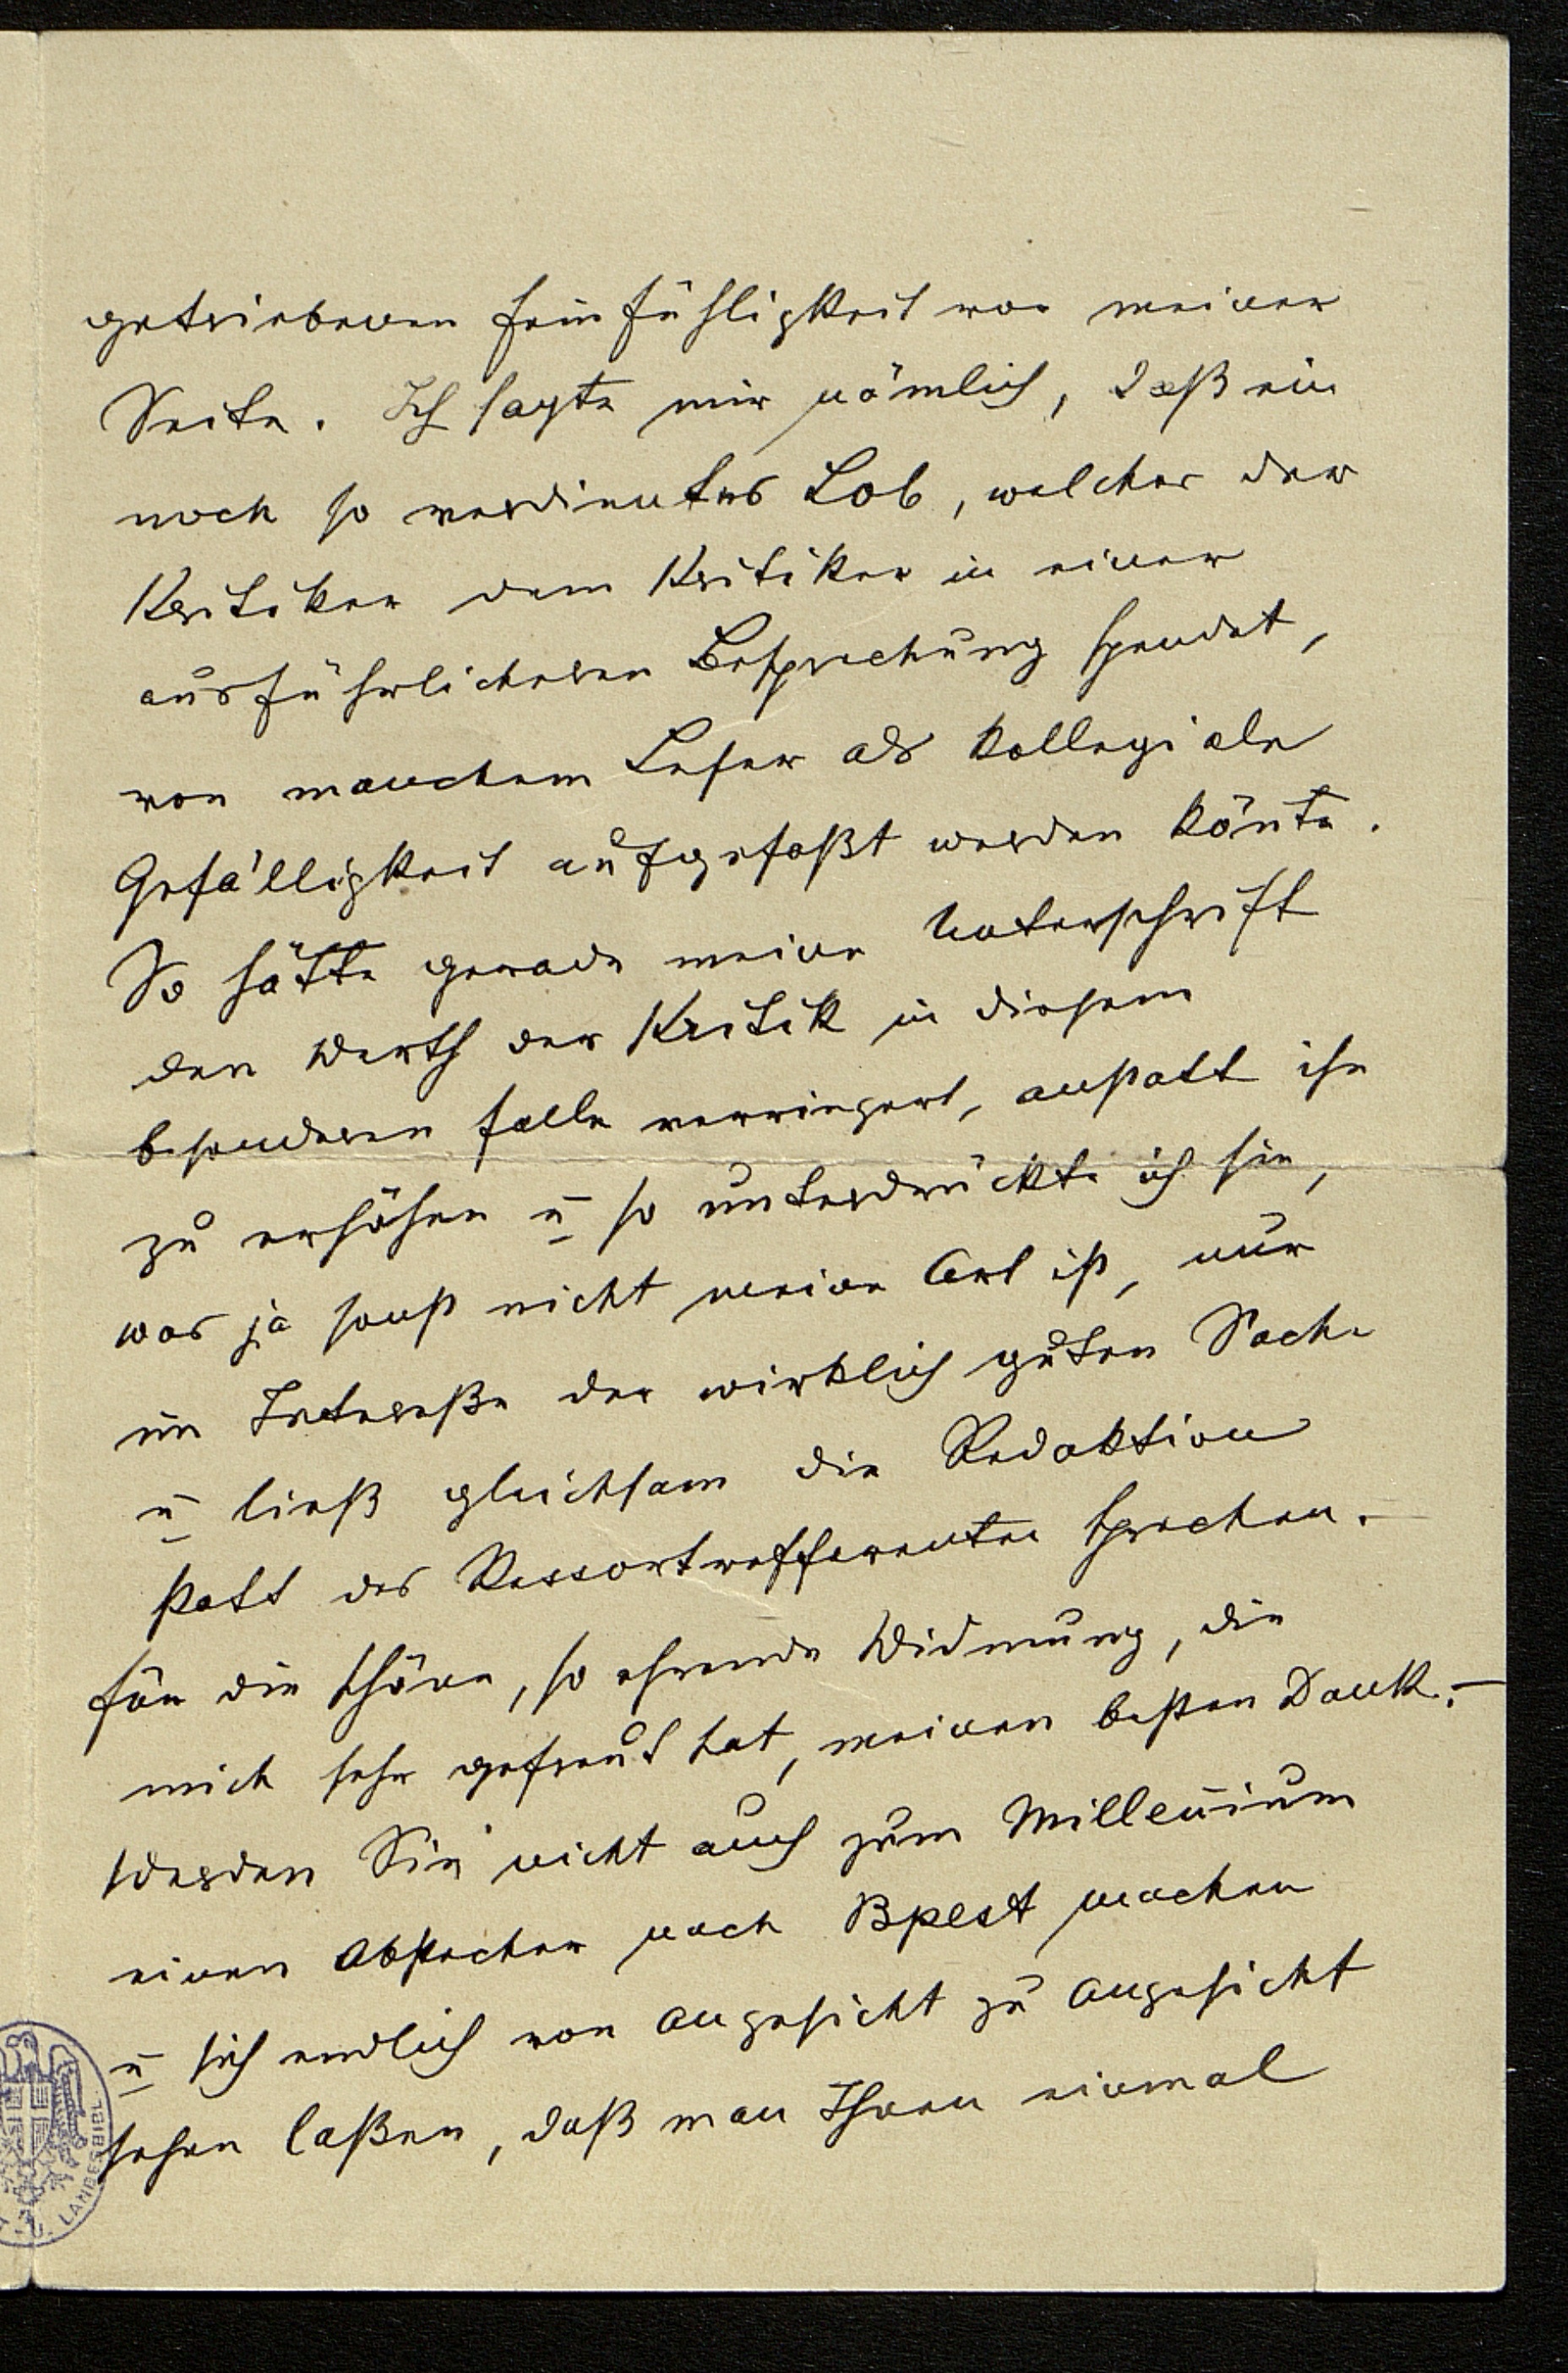 getriebenen Feinfühligkeit von meiner
Seite. Ich sagte mir nämlich, daß ein
noch so verdientes Lob, welches der
Kritiker dem Kritiker in einer
ausführlicheren Besprechung spendet,
von manchem Leser als kollegiale
Gefälligkeit aufgefaßt werden kön̄te.
So hätte gerade meine Unterschrift
den Werth der Kritik in diesem
besonderen Falle verringert, anstatt ihn
zu erhöhen u̅ so unterdrückte ich sie,
was ja sonst nicht meine Art ist, nur
im Intereße der wirklich guten Sache
u̅ ließ gleichsam die Redaktion
statt des Ressortrefferenten sprechen.
Für die schöne, so ehrende Widmung, die
mich sehr gefreut hat, meinen besten Dank. –
Werden Sie nicht auch zum Millen̄ium
einen Abstecher nach Bpest machen
u̅ sich endlich von Angesicht zu Angesicht
sehen laßen, daß man Ihnen einmal
U. LANDESBIBL.